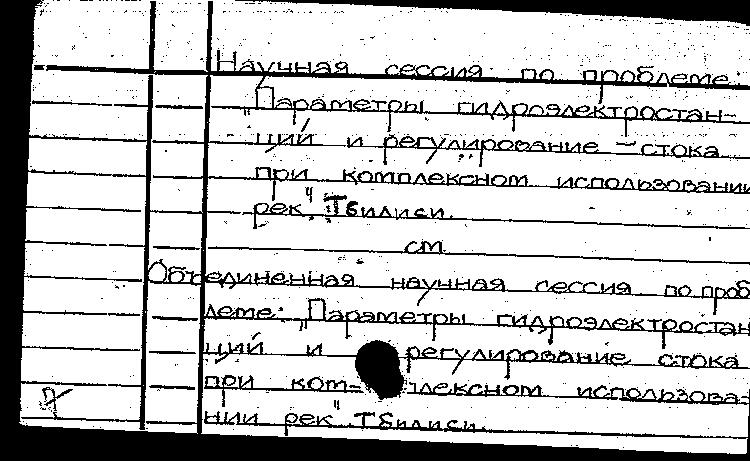 Научная сессия по проблеме:
"Параметры гидроэлектростан-
ций и регулирование стока
при комплексном использовании
рек" Тбилиси.
см.
Объединенная научная сессия по проб
леме: "Параметры гидроэлектростан
ций и регулирование стока
при ком- плексном использова-
нии рек". Тбилиси.